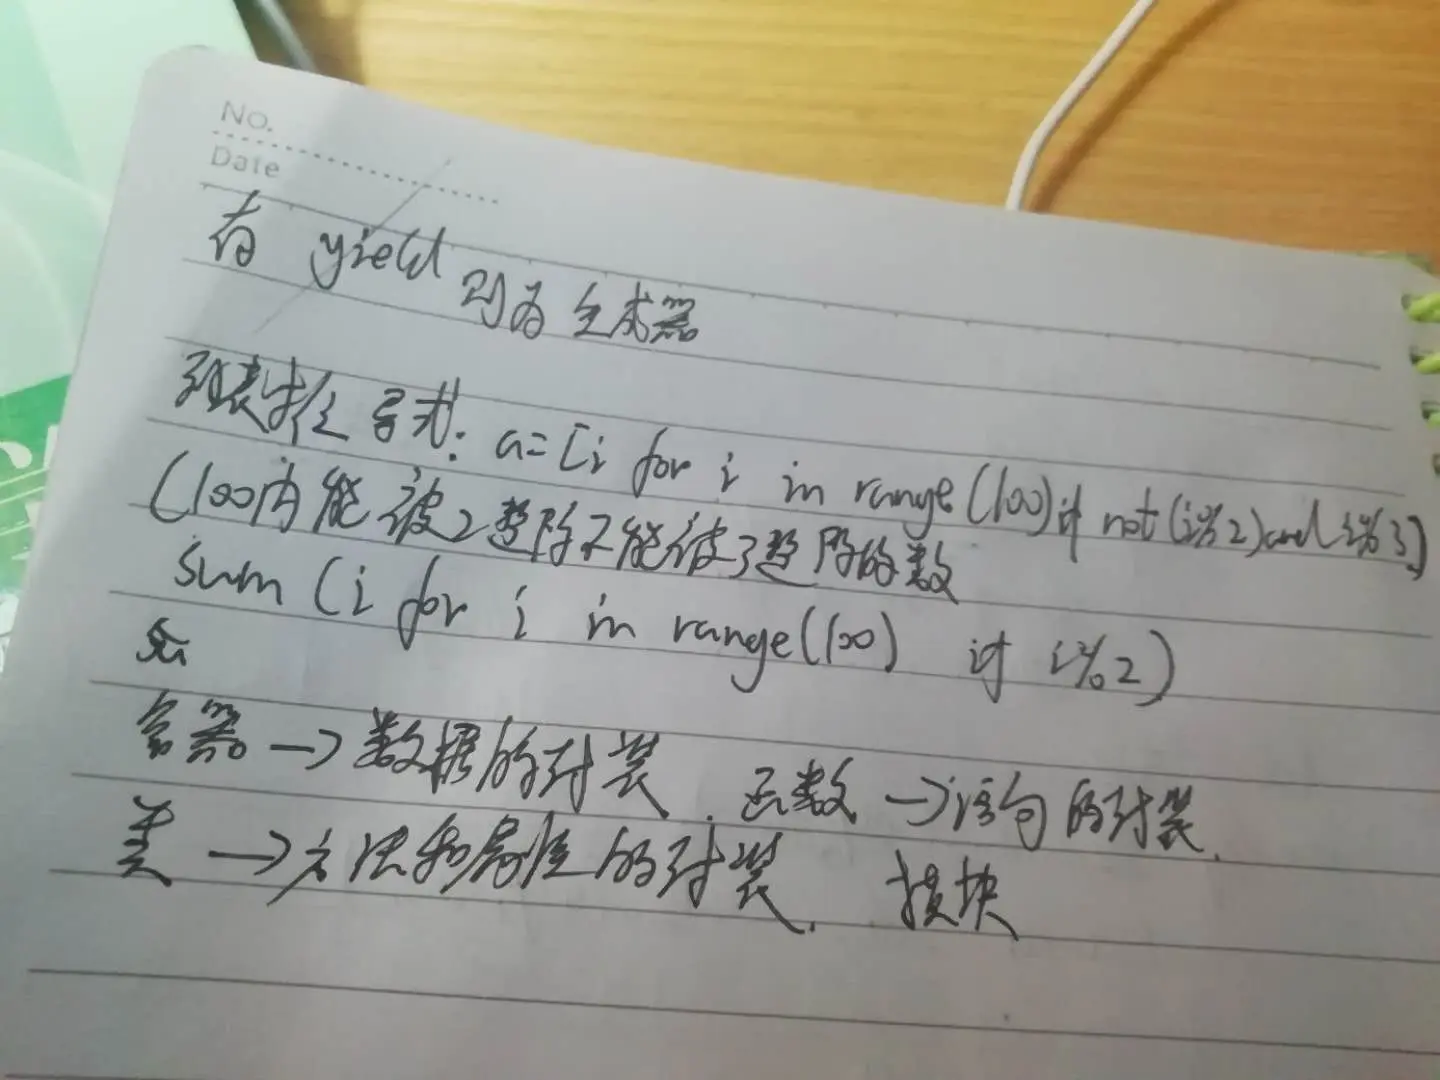 No.
Date
有 yield 则为生成器
列表推导式: a=[i for i in range(100) if not(i%2) and i%3]
(100内能被2整除不能被3整除的数
sum (i for i in range(100) if i%2)
容器→数据的封装. 函数→语句的封装.
类→方法和属性的封装. 模块